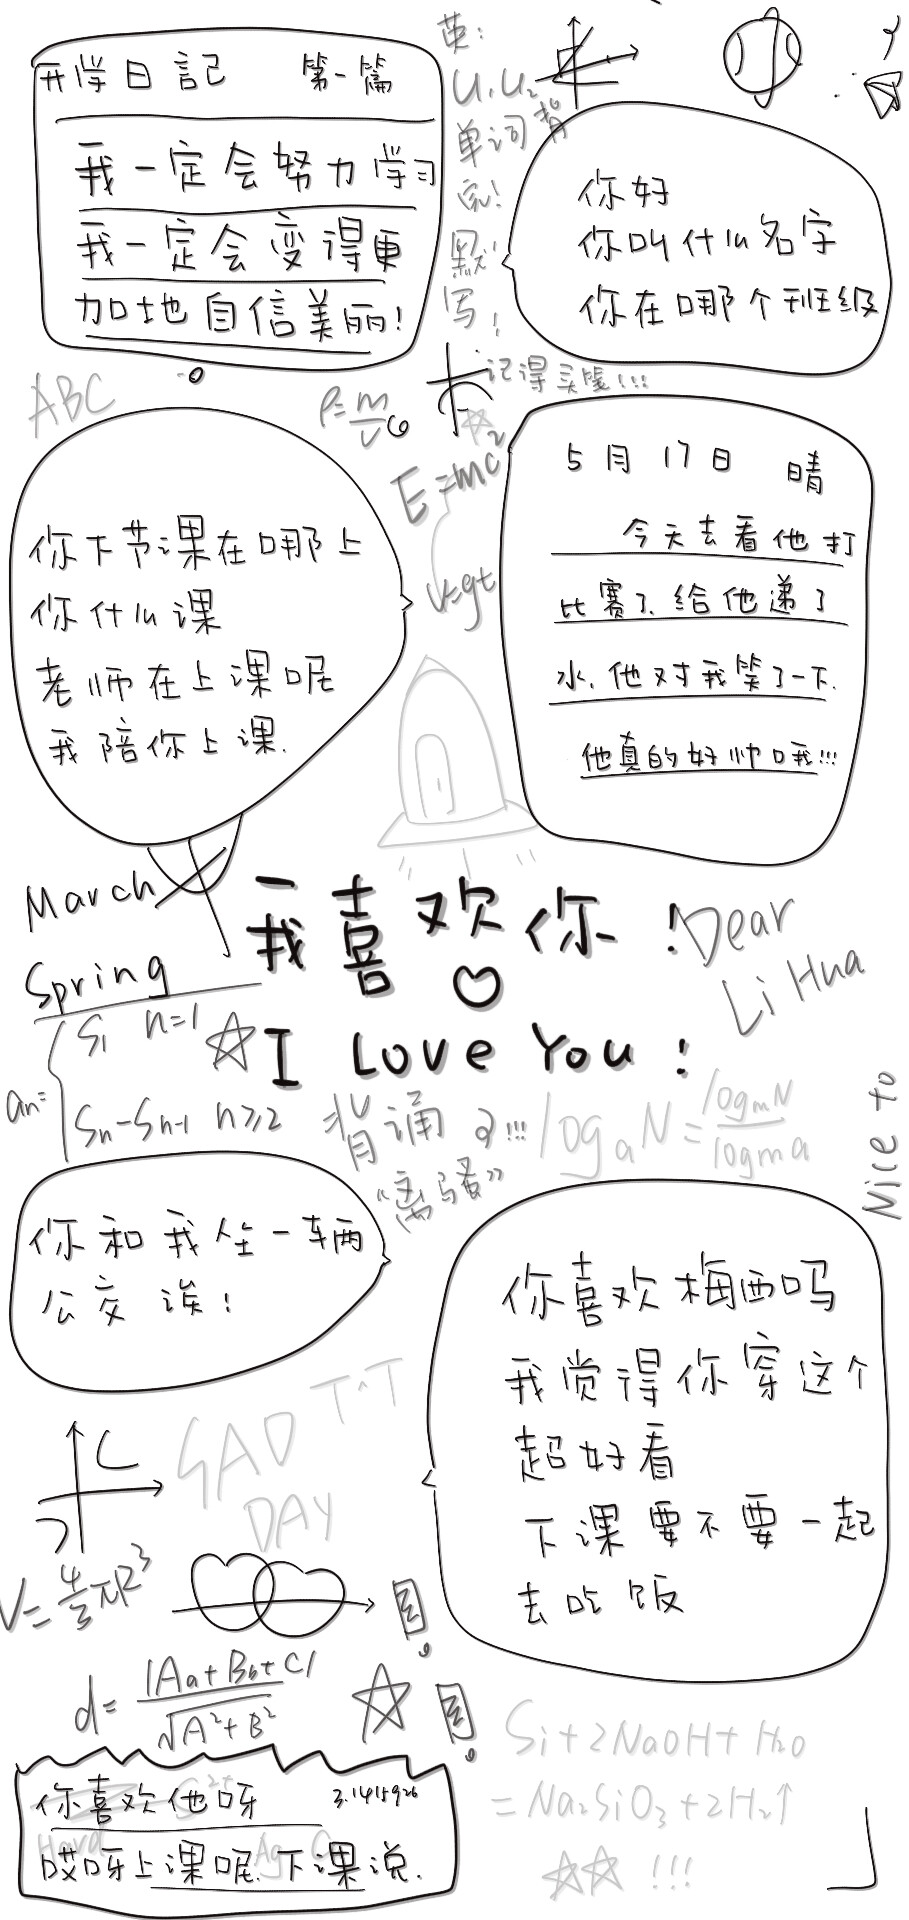 开学日記 第一篇
我一定会努力学习
我一定会变得更
加地自信美丽!
英:
U1、U2
单词背
完!
默
写!
你好
你叫什么名字
你在哪个班级
记得买笔!!!
ABC
ρ=m/v
E=mc²
v=gt
5月17日 晴
今天去看他打
比赛了、给他递了
水,他对我笑了一下.
他真的好帅哦!!!
你下节课在哪上
你什么课
老师在上课呢
我陪你上课.
March
Spring
我喜欢你!
I Love You!
Dear
Li Hua
an=
S1 n=1
Sn-Sn-1 n≥2
背诵
!!!
“离骚”
logaN=logmN/logma
Nice to
你和我坐一辆
公交诶!
你喜欢梅西吗
我觉得你穿这个
超好看
下课要不要一起
去吃饭
SAD T^T
DAY
V=4/3πR³
d=|Aa+Bb+C|/√A²+B²
Si+2NaOH+H₂O
=Na₂SiO₃+2H₂↑
!!!
你喜欢他呀 3.1415926
Hard
哎呀上课呢.下课说.